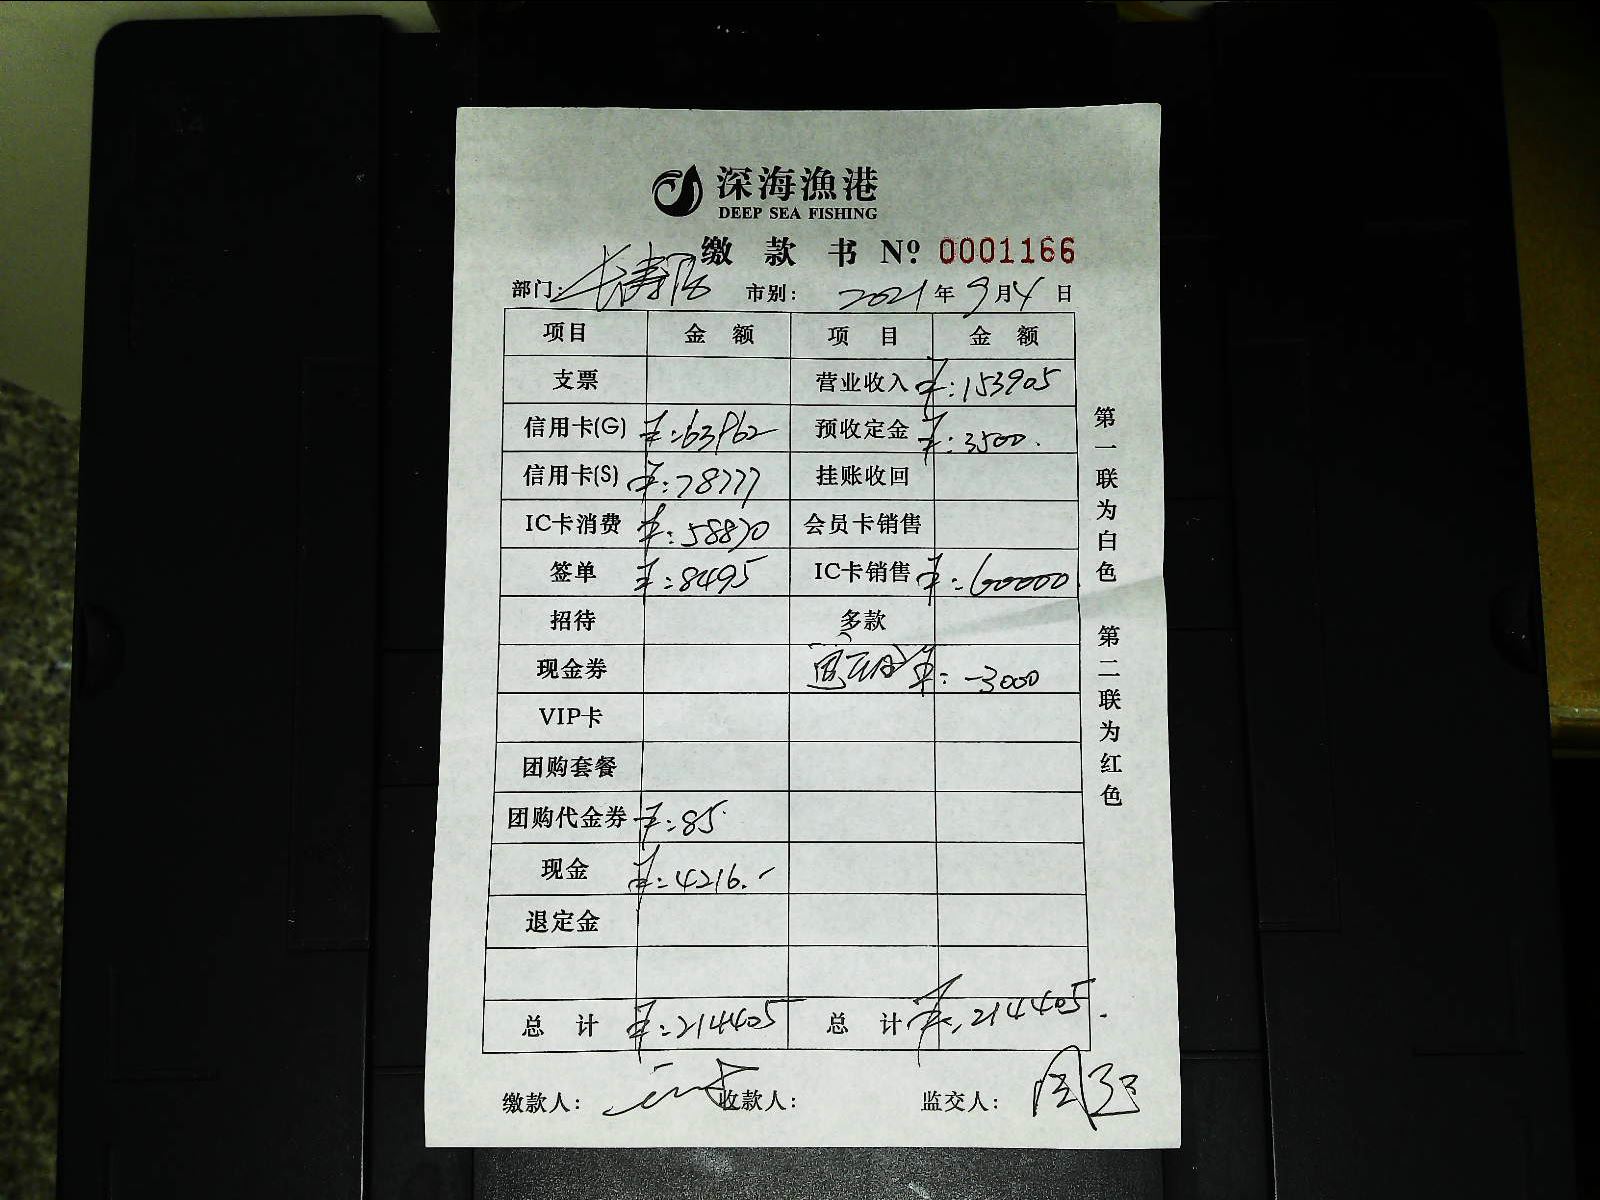 深海漁港
DEEP SEA FISHING
缴款书 Nº 0001166
部门: 市别: 2021年9月4日
项目 金额 项目 金额
支票 营业收入 ¥:153905
信用卡(G) ¥:63962 预收定金 ¥:3500.
信用卡(S) ¥:78777 挂账收回
IC卡消费 ¥:58870 会员卡销售
签单 ¥:8495 IC卡销售 ¥:60000.
招待 多款
现金券 ¥:-3000
VIP卡
团购套餐
团购代金券 ¥:85.
现金 ¥:4216.-
退定金
总计 ¥:214405 总计 ¥:214405.
缴款人: 收款人: 监交人:
第一联为白色 第二联为红色